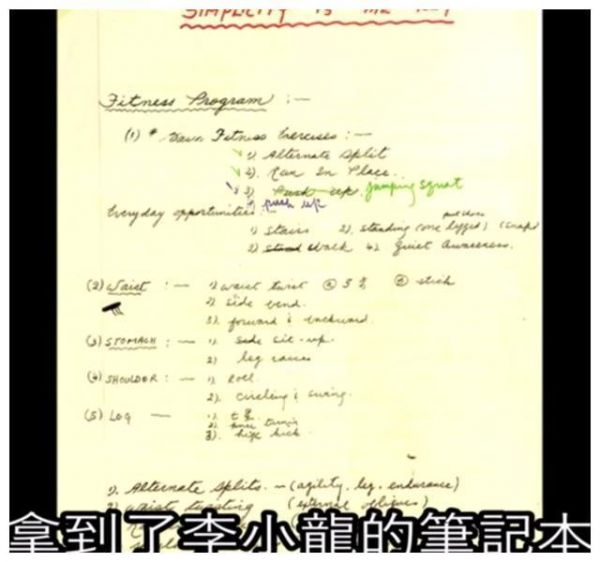 SIMPLICITY IS THE KEY
Fitness Program :—
(1) * Fitness Exercises :—
1) Alternate split
2). Run In Place.
3) Push up. jumping squat
push up
Everyday opportunities:
1) Stairs 2). standing (one legged)
walk 4) Quiet Awareness.
(2) Waist :— 1) waist twist
2) side bend.
3). forward & backward.
(3) STOMACH :— 1). side sit-up.
2) leg raises
(4) SHOULDER :— 1) roll
2). circling & swing.
(5) LEG — 1).
2)
3). high kick
1). Alternate Splits. — (agility, leg, endurance)
2) waist twisting (external obliques)
拿到了李小龍的筆記本